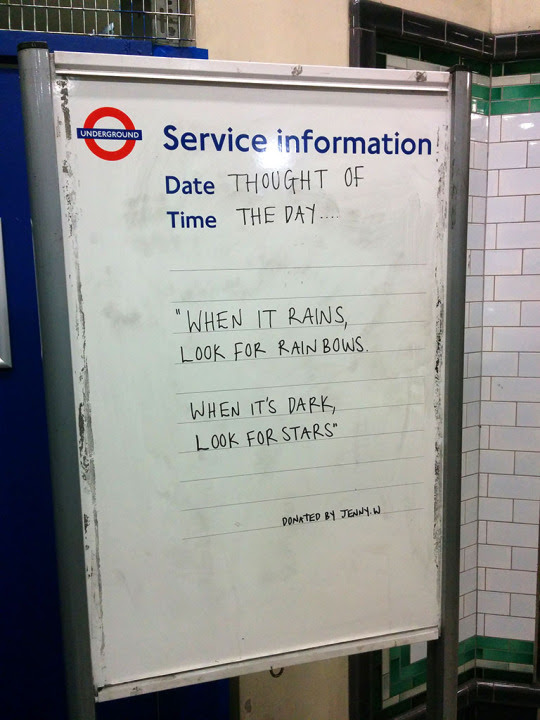 UNDERGROUND
Service information
Date THOUGHT OF
Time THE DAY....
"WHEN IT RAINS,
LOOK FOR RAINBOWS.
WHEN IT'S DARK,
LOOK FOR STARS"
DONATED BY JENNY.W